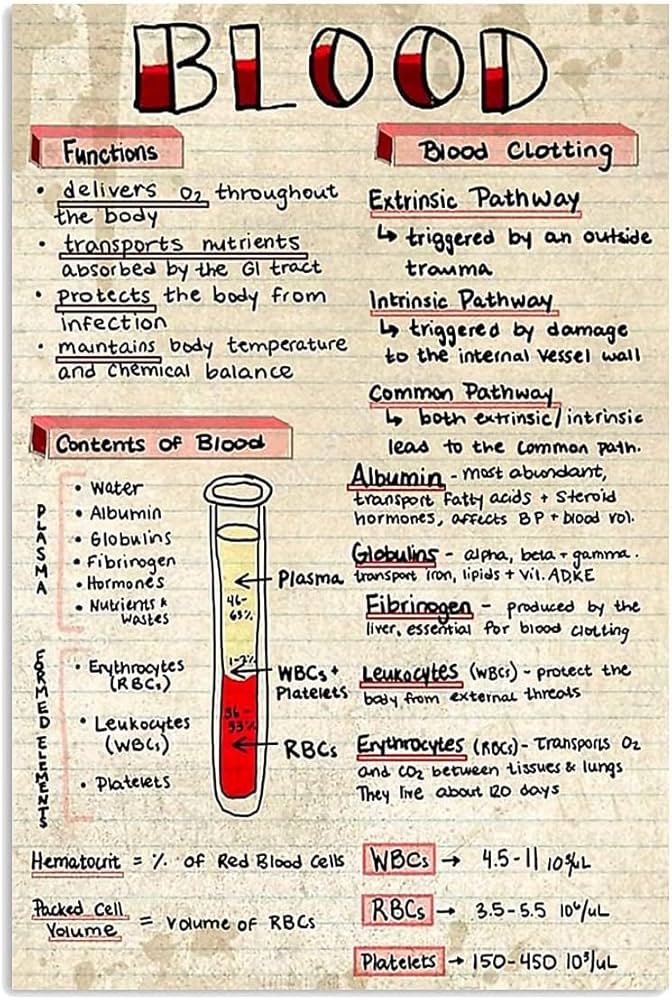 BLOOD
Functions
• delivers O₂ throughout
the body
• transports nutrients
absorbed by the GI tract
• protects the body from
infection
• maintains body temperature
and chemical balance
Blood Clotting
Extrinsic Pathway
↳ triggered by an outside
trauma
Intrinsic Pathway
↳ triggered by damage
to the internal vessel wall
Common Pathway
↳ both extrinsic/intrinsic
lead to the common path.
Contents of Blood
PLASMA
• Water
• Albumin
• Globulins
• Fibrinogen
• Hormones
• Nutrients &
Wastes
FORMED ELEMENTS
• Erythrocytes
(RBCs)
• Leukocytes
(WBCs)
• Platelets
← Plasma
46-
63%
1-2%
← WBCs +
Platelets
36-
53%
← RBCs
Albumin - most abundant,
transport fatty acids + steroid
hormones, affects BP + blood vol.
Globulins - alpha, beta + gamma.
transport iron, lipids + Vit. ADKE
Fibrinogen - produced by the
liver, essential for blood clotting
Leukocytes (WBCs) - protect the
body from external threats
Erythrocytes (RBCs) - Transports O₂
and CO₂ between tissues & lungs
They live about 120 days
Hematocrit = % of Red Blood Cells
Packed Cell
Volume = Volume of RBCs
WBCs → 4.5-11
RBCs → 3.5-5.5 10⁶/uL
Platelets → 150-450 10³/uL